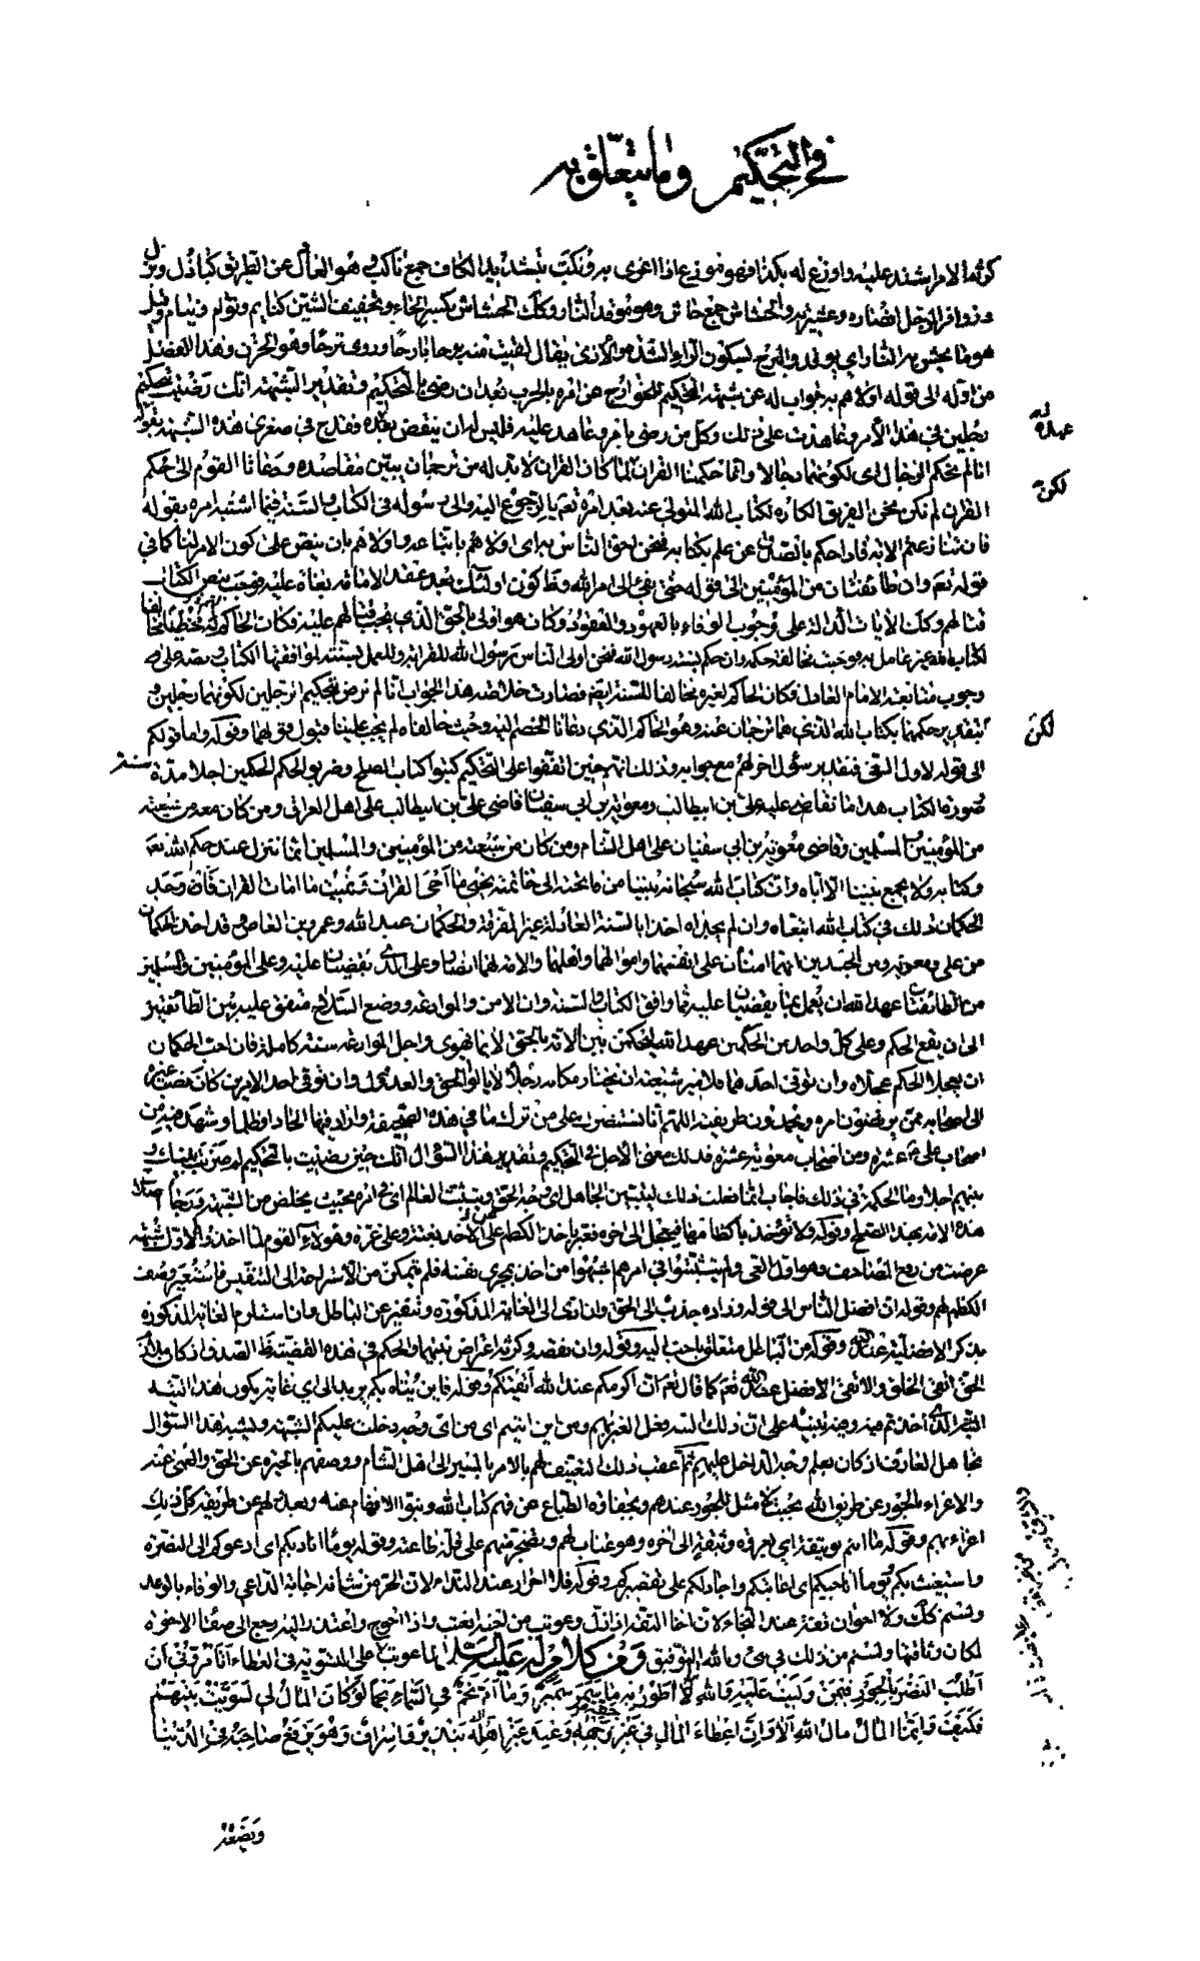 في التحكيم وما يتعلق به
كرثه الامر اشتد عليه واوزع له بكذا فهو موزع به اذا اغرى به ونكب بتشديد الكاف جمع ناكب وهو العادل عن الطريق كباذل وبزل
وزوافر الرجل انصاره وعشيرته والحشاش جمع حاش وهو موقد النار وكذلك الحشاش بكسر الحاء وتخفيف الشين كنايم ونوام ونيام وقيل
هو ما يحش به النار اي يوقد والبرح بسكون الراء الشدة والاذى يقال لقيت منه برحا بارحا وروى ترحا وهو الحزن وهذا الفصل
من اوله الى قوله اولاهم به جواب له عن شبهة التحكيم للخوارج عن امره بالحرب بعد ان رضى بالتحكيم وتقدير الشبهة انك رضيت بتحكيم
رجلين في هذا الأمر وعاهدت على ذلك وكل من رضى بامر وعاهد عليه فليس له ان ينقض عهده فقدح في صغرى هذه الشبهة بقوله
انا لم نحكم الرجال اى لكونهما رجالا وانما حكمنا القران لكن لما كان القران لا بد له من ترجمان يبين مقاصده ودعانا القوم الى حكم
القران لم نكن نحن الفريق الكاره لكتاب الله المتولي عنه بعد امره تعم بالرجوع اليه والى رسوله في الكتاب والسنة فيما اشتبه امره بقوله
فان تنازعتم الاية فاذا حكم بالصدق عن علم بكتابه فنحن احق الناس به اى اولاهم باتباعه واولاهم بان ينص على كون الامر لنا كما في
قوله تعم وان طائفتان من المؤمنين الى قوله حتى تفئ الى امر الله وظ كون اولئك بعد عقد الامامة بغاة عليه فوجب بنص الكتاب
قتالهم وكذلك الايات الدالة على وجوب الوفاء بالعهود والعقود وكان هو اولى بالحق الذي يجب قتالهم عليه فكان الحاكم لهم مخطئا مخالفا
لكتاب الله غير عامل به فوجبت مخالفة حكمه وان حكم بسنة رسول الله فنحن اولى الناس برسول الله للقرابة وللعمل بسنته لموافقتها الكتاب ونصه على
وجوب متابعة الامام العادل فكان الحاكم لغيره مخالفا للسنة ايضا فصارت خلاصة هذا الجواب انا لم نرض بتحكيم الرجلين لكونهما رجلين
لكن بتقدير حكمهما بكتاب الله الذي هما ترجمان عنه وهو الحاكم الذي دعانا الخصم اليه وحيث خالفاه لم يجب علينا قبول قولهما وقوله واما قولكم
الى قوله لاول الغي فتقدير سؤال اخر لهم مع جوابه وذلك انهم حين اتفقوا على التحكيم كتبوا كتاب الصلح وضربوا لحكم الحكمين اجلا مدة سنة
صورة الكتاب هذا ما تقاضى عليه علي بن ابيطالب ومعوية بن ابي سفيان قاضى علي بن ابيطالب على اهل العراق ومن كان معه من شيعته
من المؤمنين والمسلمين وقاضى معوية بن ابي سفيان على اهل الشام ومن كان من شيعته من المؤمنين والمسلمين انما ننزل عند حكم الله تعم
وكتابه ولا يجمع بيننا الا اياه وان كتاب الله سبحانه بيننا من فاتحته الى خاتمته نحيي ما احيى القران ونميت ما امات القران فان وجد
الحكمان ذلك في كتاب الله اتبعاه وان لم يجداه اخذا بالسنة العادلة غير المفرقة والحكمان عبد الله وعمرو بن العاص وقد اخذ الحكمان
من علي ومعوية ومن الجندين انهما امنان على انفسهما واموالهما واهلهما والامة لهما انصار وعلى الذي يقضيان عليه وعلى المؤمنين والمسلمين
من الطائفتين عهد الله ان يعمل بما يقضيان عليه مما وافق الكتاب والسنة وان الامن والموادعة ووضع السلاح متفق عليه بين الطائفتين
الى ان يقع الحكم وعلى كل واحد من الحكمين عهد الله ليحكمن بين الامة بالحق لا بما يهوى واجل الموادعة سنة كاملة فان احب الحكمان
ان يعجلا الحكم عجلاه وان توفي احدهما فلامير شيعته ان يختار مكانه رجلا لا يالوا الحق والعدل وان توفي احد الاميرين كان نصب غيره
الى اصحابه ممن يرضون امره ويحمدون طريقته اللهم انا نستنصرك على من ترك ما في هذه الصحيفة واراد فيها الحادا وظلما وشهد فيه من
اصحاب علي عشرة ومن اصحاب معوية عشرة فذلك معنى الاجل في التحكيم وتقدير هذا السؤال انك حين رضيت بالتحكيم لم ضربت بينك و
بينهم اجلا وما الحكمة في ذلك فاجاب انما فعلت ذلك ليتبين الجاهل اى وجه الحق ويتثبت العالم اى في امره بحيث يخلص من الشبهة ورجاء اصلاح
هذه الامة بهذا الصلح وقوله ولا تؤخذ باكظامها فيعجل الى اخره فعبر باخذ الكظم عن الاخذ بغتة وعلى غرة وهؤلاء القوم لما اخذوا لاول شبهة
عرضت من رفع المصاحف وهو اول الغي ولم يتثبتوا في امرهم اشبهوا من اخذ بمجرى نفسه فلم يتمكن من الاستراحة الى التنفس فاستعير وصف
الكظم لهم وقوله ان افضل الناس الى قوله وزاده جذب الى الحق وان ادى الى الغاية المذكورة وتنفير عن الباطل وان استلزم الغاية المذكورة
بذكر الافضلية عند الله وقوله من الباطل متعلق باحب اليه وقوله وان نقصه وكرثه اعتراض بينهما والحكم في هذه القضية ظ الصدق اذ كان ملازم
الحق اتقى الخلق والاتقى الافضل عند الله تعم كما قال تعم ان اكرمكم عند الله اتقيكم وقوله فاين يتاه بكم يريد الى اي غاية يكون هذا التيه
التيه الذي اخذتم فيه وفيه تنبيه على ان ذلك التيه فعل الغير بهم ومن اين اتيتم اى من اى وجه دخلت عليكم الشبهة ويشبه هذا السؤال
تجاهل العارف اذ كان يعلم وجه الداخل عليهم ثم عقب ذلك التعنيف لهم بالامر بالمسير الى اهل الشام ووصفهم بالحيرة عن الحق والعمى عنه
والاغراء بالجور عن طريق الله بحيث لا مثل للجور عندهم وبجفاوة الطباع عن فهم كتاب الله ونبو الافهام عنه وبعدولهم عن طريقه كل ذلك
اغراء بهم وقوله ما انتم بوثيقة اي بعروة وثيقة الى اخره وهو عتاب لهم وتضجر منهم على قلة طاعته وقوله يوما اناديكم اى ادعوكم الى النصرة
واستغيث بكم يوما اناجيكم اى اعاتبكم واجادلكم على تقصيركم وقوله فلا احرار عند النداء لان الحر من شانه اجابة الداعي والوفاء بالوعد
ولستم كذلك ولا اخوان ثقة عند النجاء لان اخا الثقة اذا زل وعوتب من اخيه اعتب واذا احوج واعتذر اليه رجع الى صفاء الاخوة
لمكان وثاقتها ولستم من ذلك في شئ وبالله التوفيق ومن كلام له عليه السلام لما عوتب على التسوية في العطاء اتامروني ان
اطلب النصر بالجور فيمن وليت عليه والله لا اطور به ما سمر سمير وما ام نجم في السماء نجما لو كان المال لي لسويت بينهم
فكيف وانما المال مال الله الا وان اعطاء المال في غير حقه وعند غير اهله تبذير واسراف وهو يرفع صاحبه في الدنيا
ويضعه
لكنه
لكن